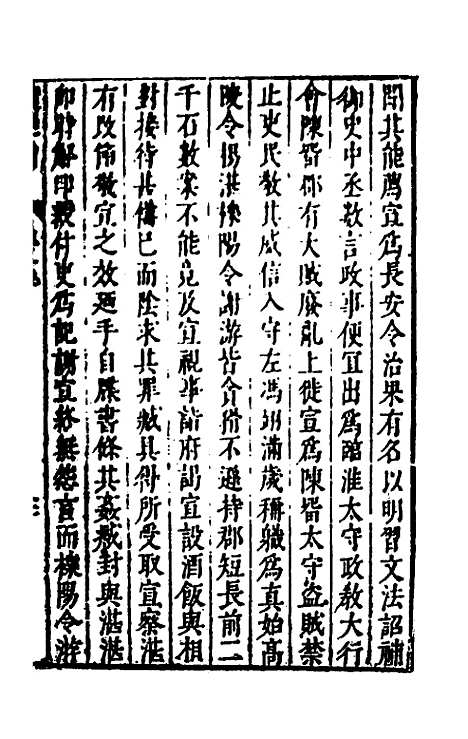 聞其能薦宣爲長安令治果有名以明習文法詔補
御史中丞數言政事便宜出爲臨淮太守政教大行
會陳留郡有大賊廢亂上徙宣爲陳留太守盜賊禁
止吏民敬其威信入守左馮翊滿歲稱職爲真始高
陵令楊湛櫟陽令謝游皆貪猾不遜持郡短長前二
千石數案不能竟及宣視事詣府謁宣設酒飯與相
對接待甚備已而陰求其罪贓具得所受取宣察湛
有改節敬宣之效廼手自牒書條其姦贓封與湛湛
即時解印綬付吏爲記謝宣終無怨言而櫟陽令游